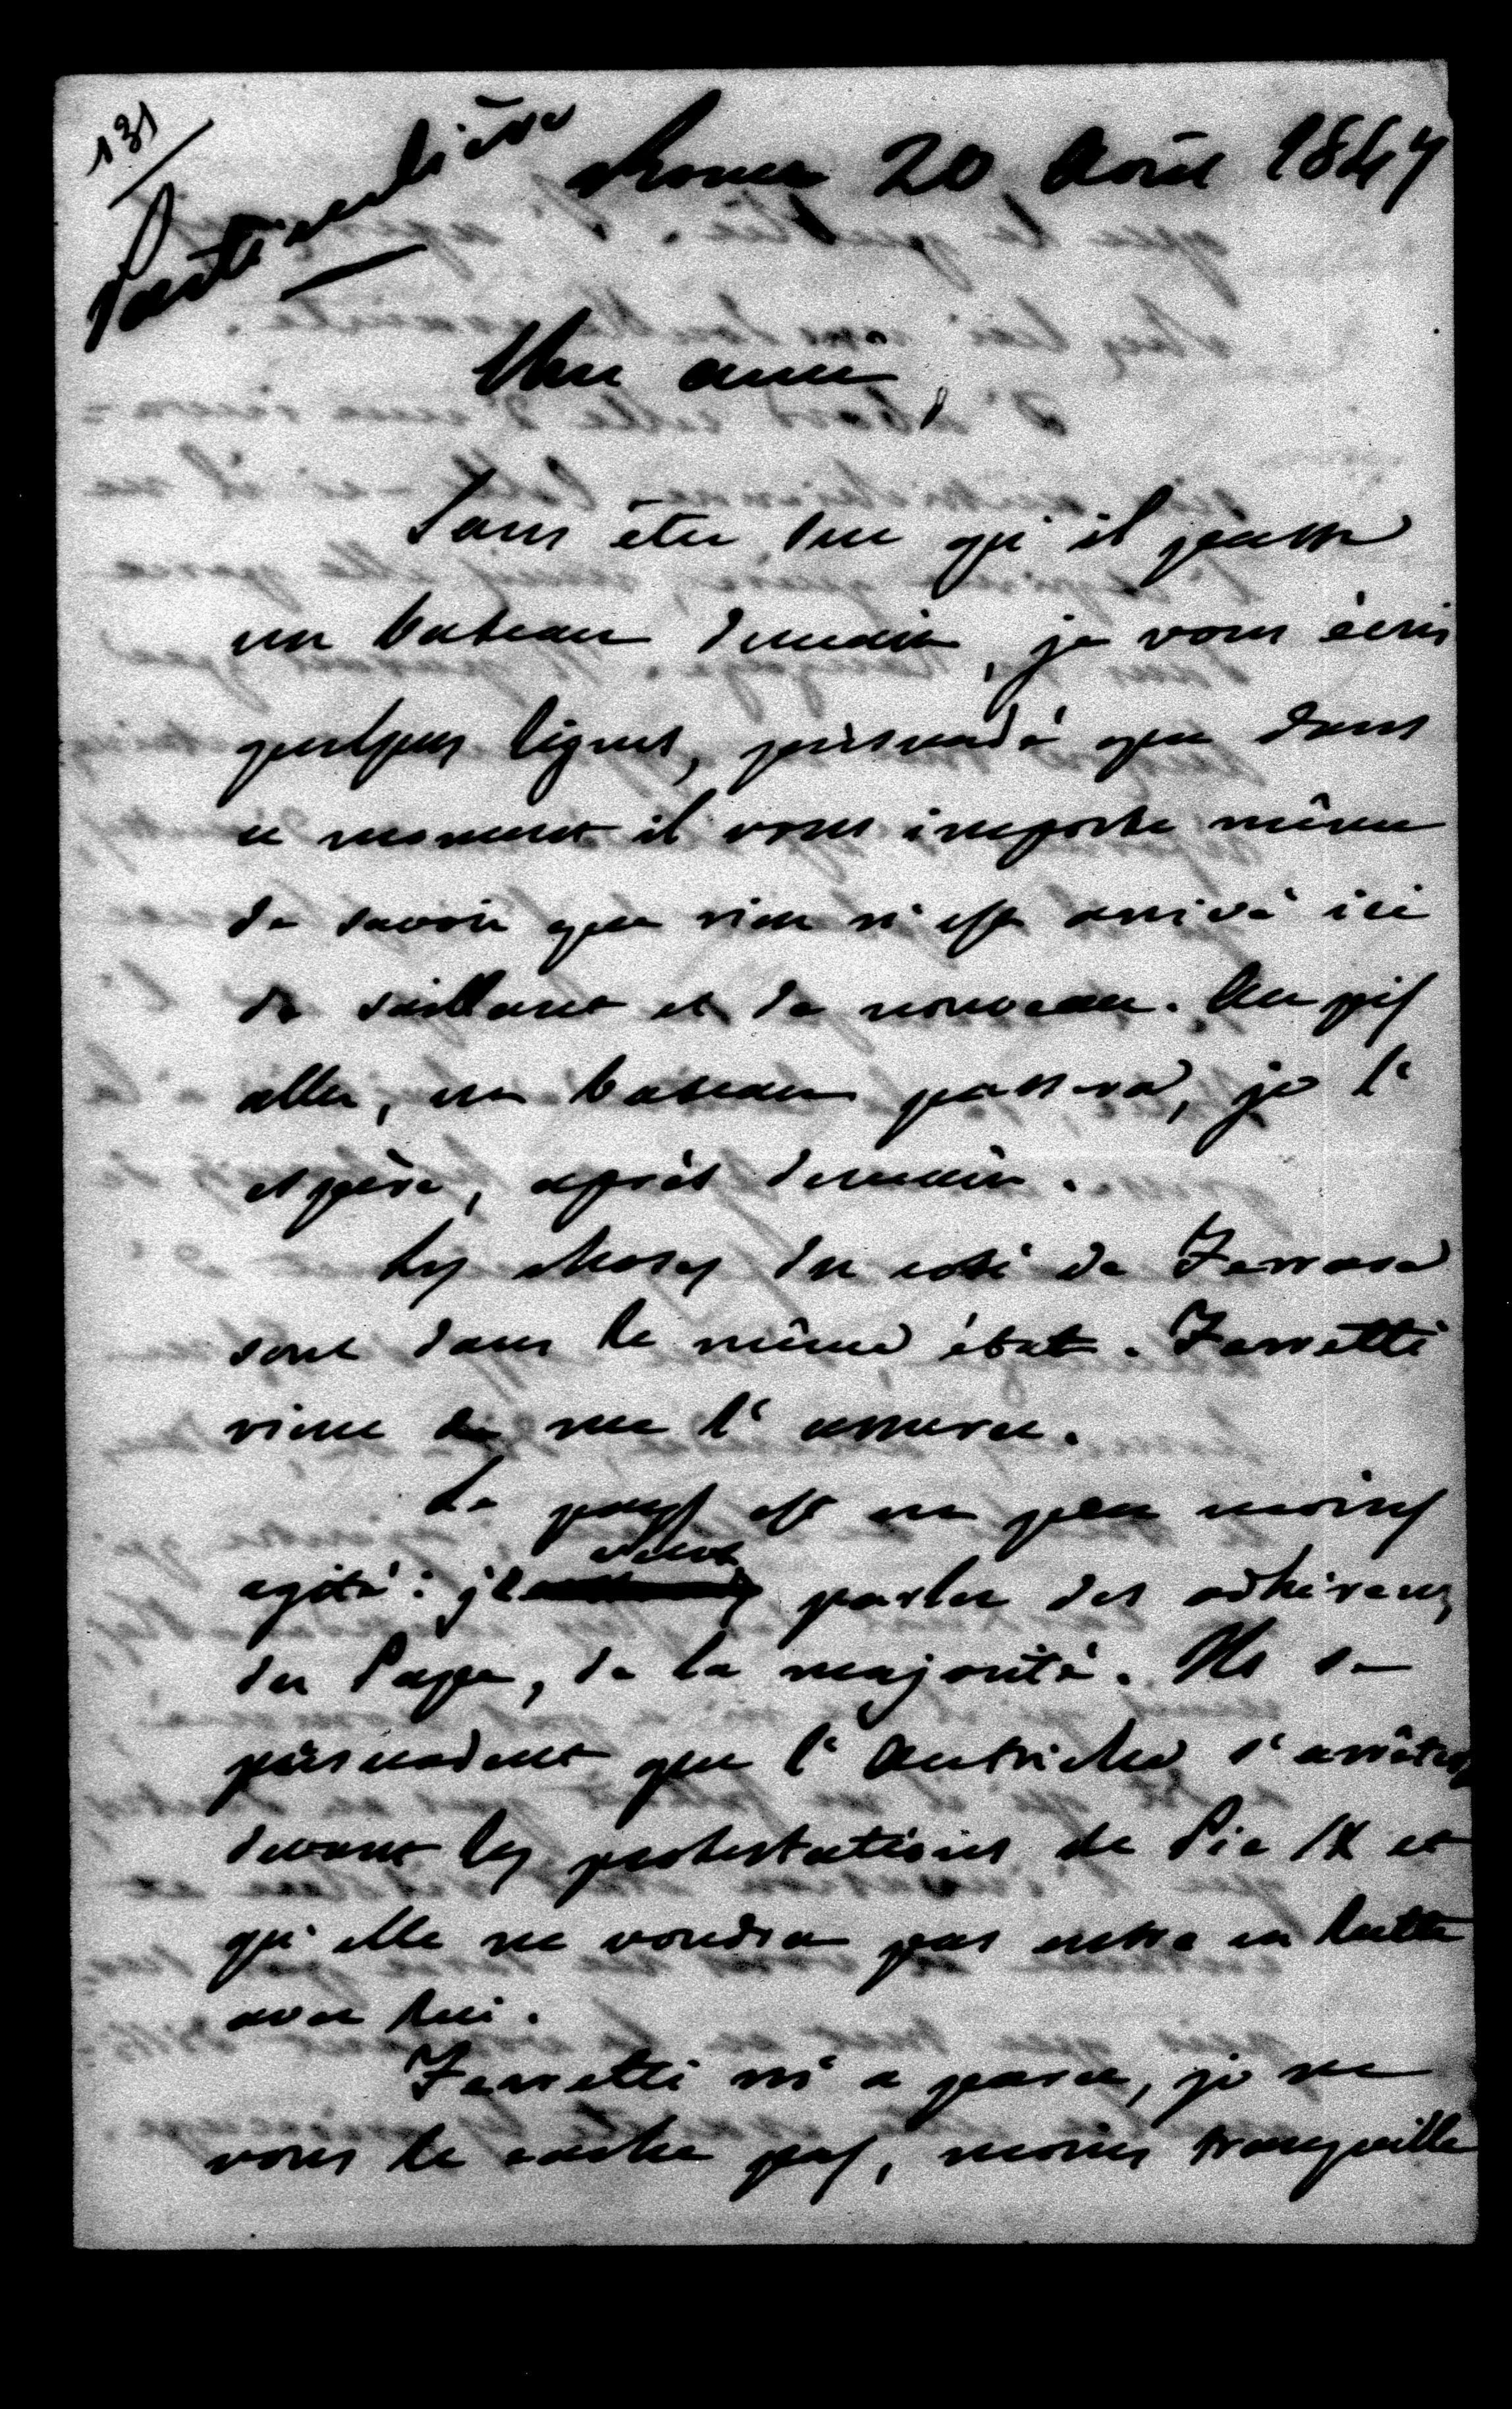 131
Particulière
Rome 20 Août 1847
Mon ami,
Sans être sur qu'il passe
un bateau demain, je vous écris
quelques lignes, persuadé que dans
ce moment il vous importe même
de savoir que rien n'est arrivé ici
de saillant et de nouveau. Au pis
aller, un bateau passera, je l'
espère, après demain.
Les choses du coté de Ferrare
sont dans le même état. Ferretti
vient de me l'assurer.
Le pays est un peu moins
agité : je veux parler des adhérens
du Pape, de la majorité. Ils se
persuadent que l'Autriche s'arrêtera
devant les protestations de Pie IX et
qu'elle ne voudra pas entrer en lutte
avec lui.
Ferretti m'a paru, je ne
vous le cache pas, moins tranquille